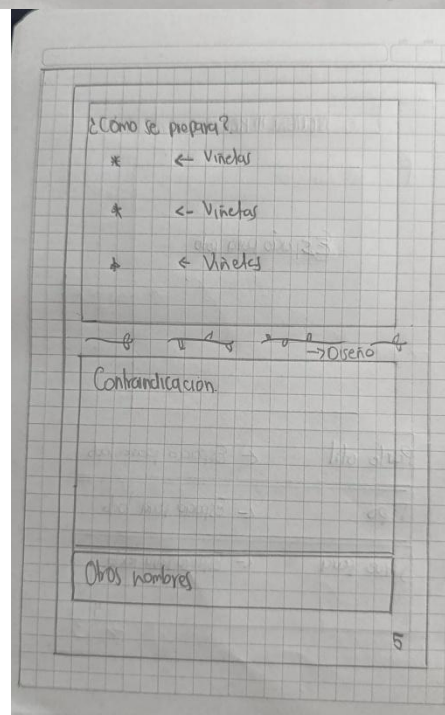 ¿Cómo se prepara?
* ← Viñetas
* <- Viñetas
* ← Viñetas
→Diseño
Contraindicación.
Otros nombres
5